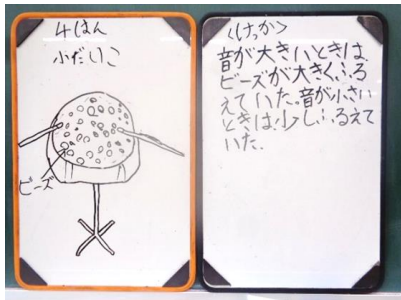 4はん
小だいこ
ビーズ
<けっか>
音が大きいときは
ビーズが大きくふる
えていた。音が小さい
ときは少しふるえて
いた.